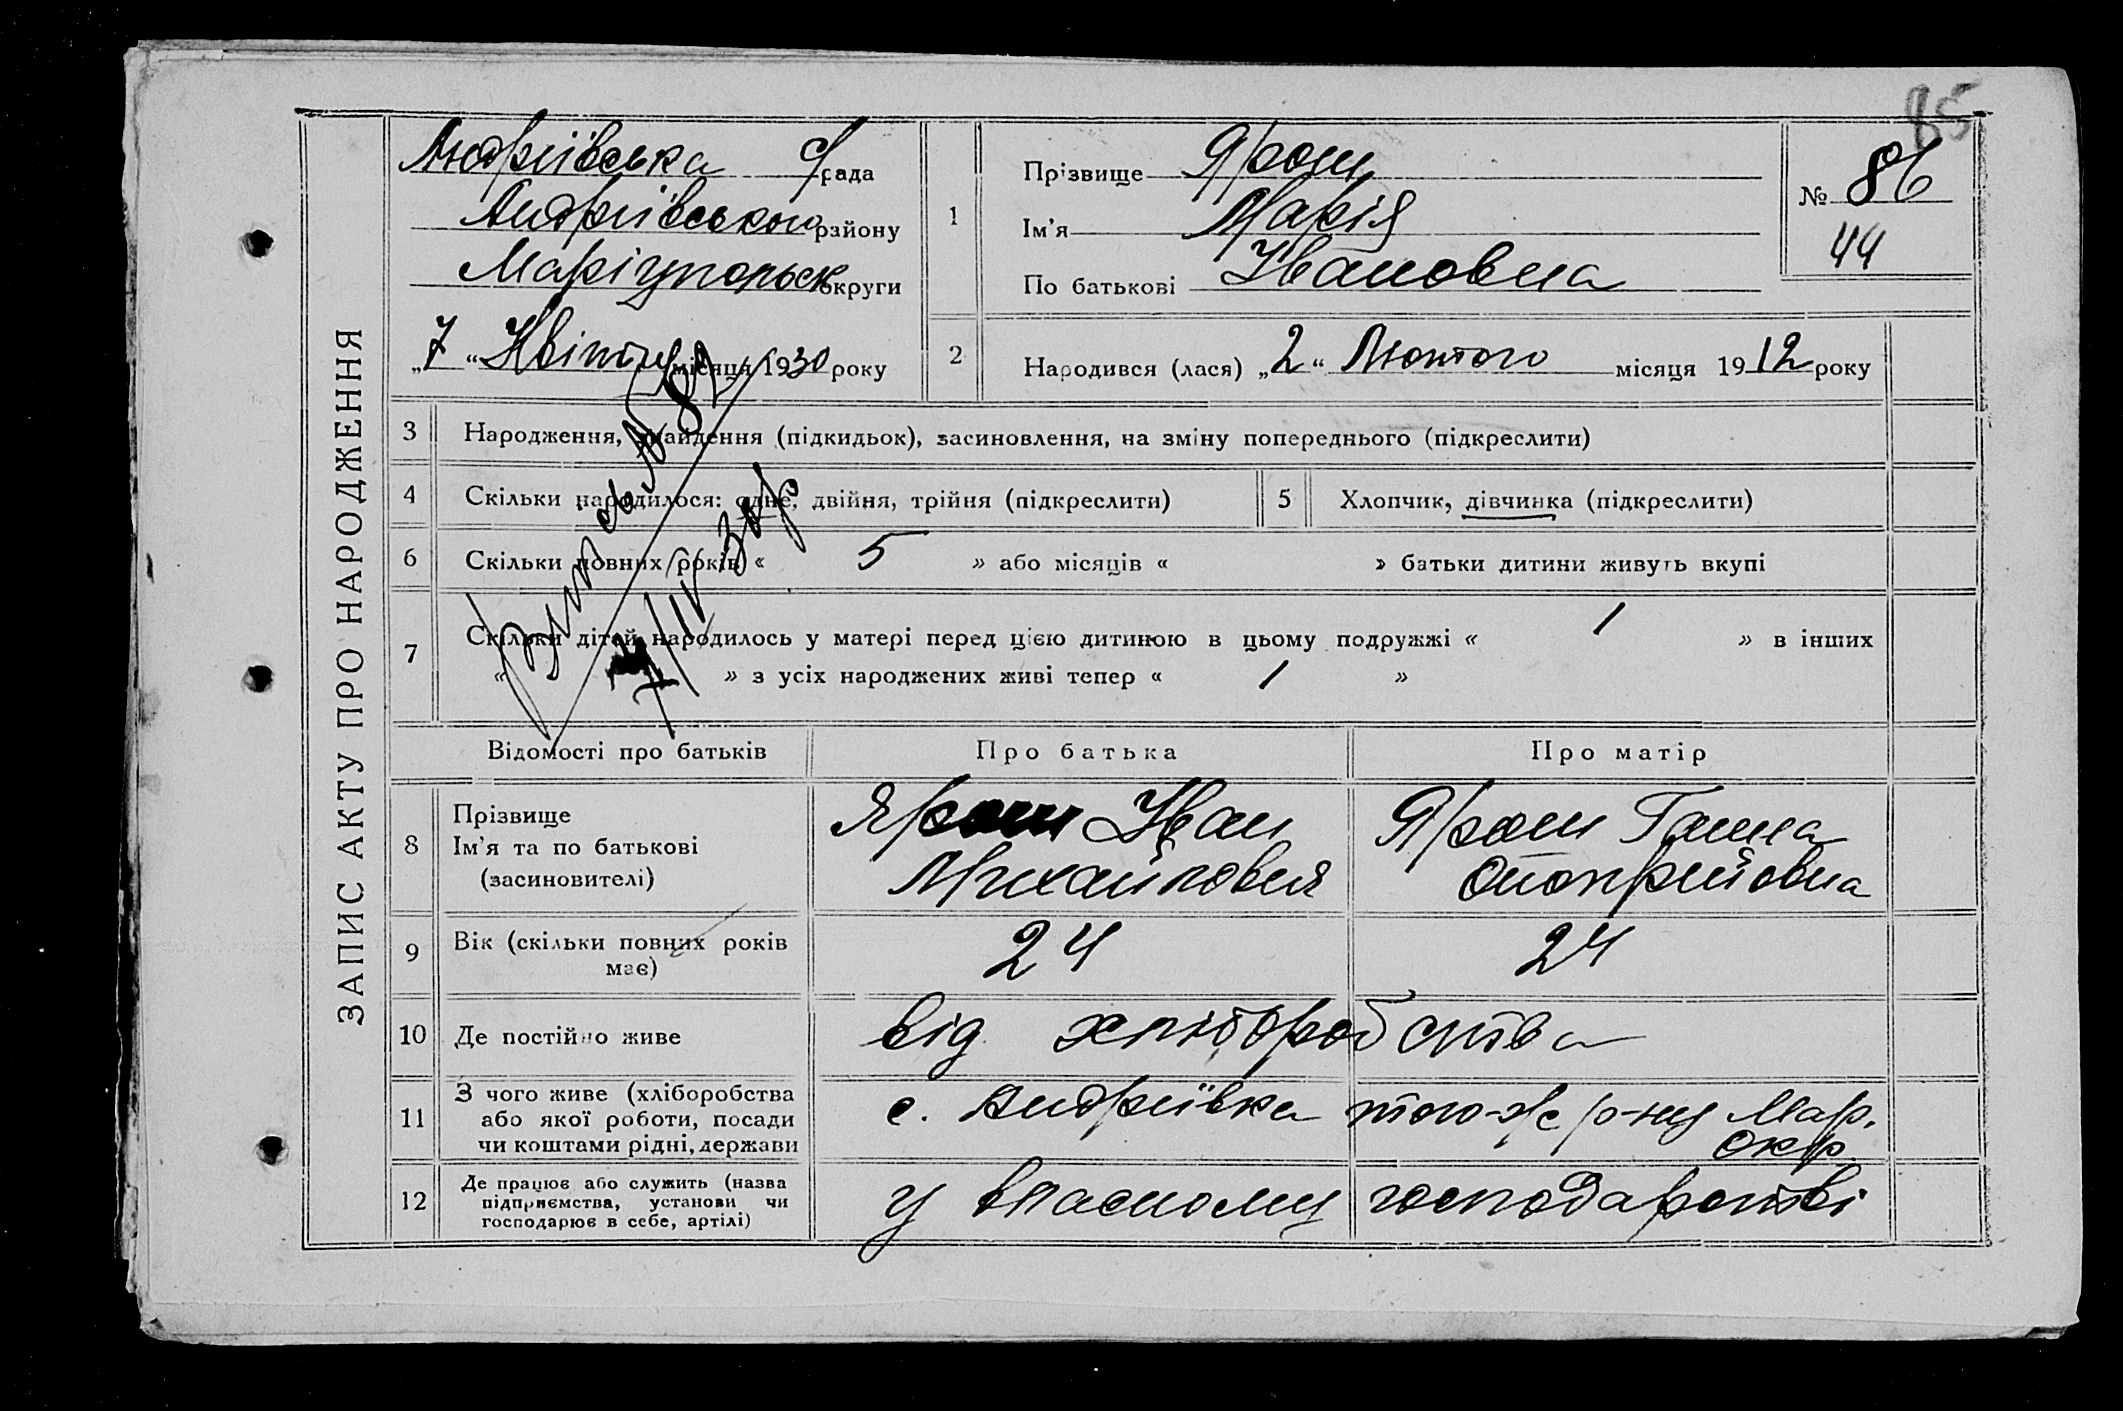 85
ЗАПИС АКТУ ПРО НАРОДЖЕННЯ
Андріївська с/рада
Андріївського району
Маріупольськ округи
„7“ Квітня місяця 1930 року
1
Прізвище Ярош
Ім'я Марія
По батькові Івановна
№ 86
44
2
Народився (лася) „2“ Лютого місяця 1912 року
3 Народження, знайдення (підкидьок), засиновлення, на зміну попереднього (підкреслити)
4 Скільки народилося: одне, двійня, трійня (підкреслити)
5 Хлопчик, дівчинка (підкреслити)
6 Скільки повних років « 5 » або місяців « » батьки дитини живуть вкупі
7 Скільки дітей народилось у матері перед цією дитиною в цьому подружжі « 1 » в інших
« » з усіх народжених живі тепер « 1 »
№ 82
7/IV 30 р
Відомості про батьків Про батька Про матір
8 Прізвище
Ім'я та по батькові
(засиновителі)
Ярош Іван
Михайловия
Ярош Ганна
Онопрійовна
9 Вік (скільки повних років
має)
24 24
10 Де постійно живе від хліборобства
11 З чого живе (хліборобства
або якої роботи, посади
чи коштами рідні, держави
с. Андріївка того-ж р-ну Мар.
Окр.
12 Де працює або служить (назва
підприємства, установи чи
господарює в себе, артілі)
у власному господарстві